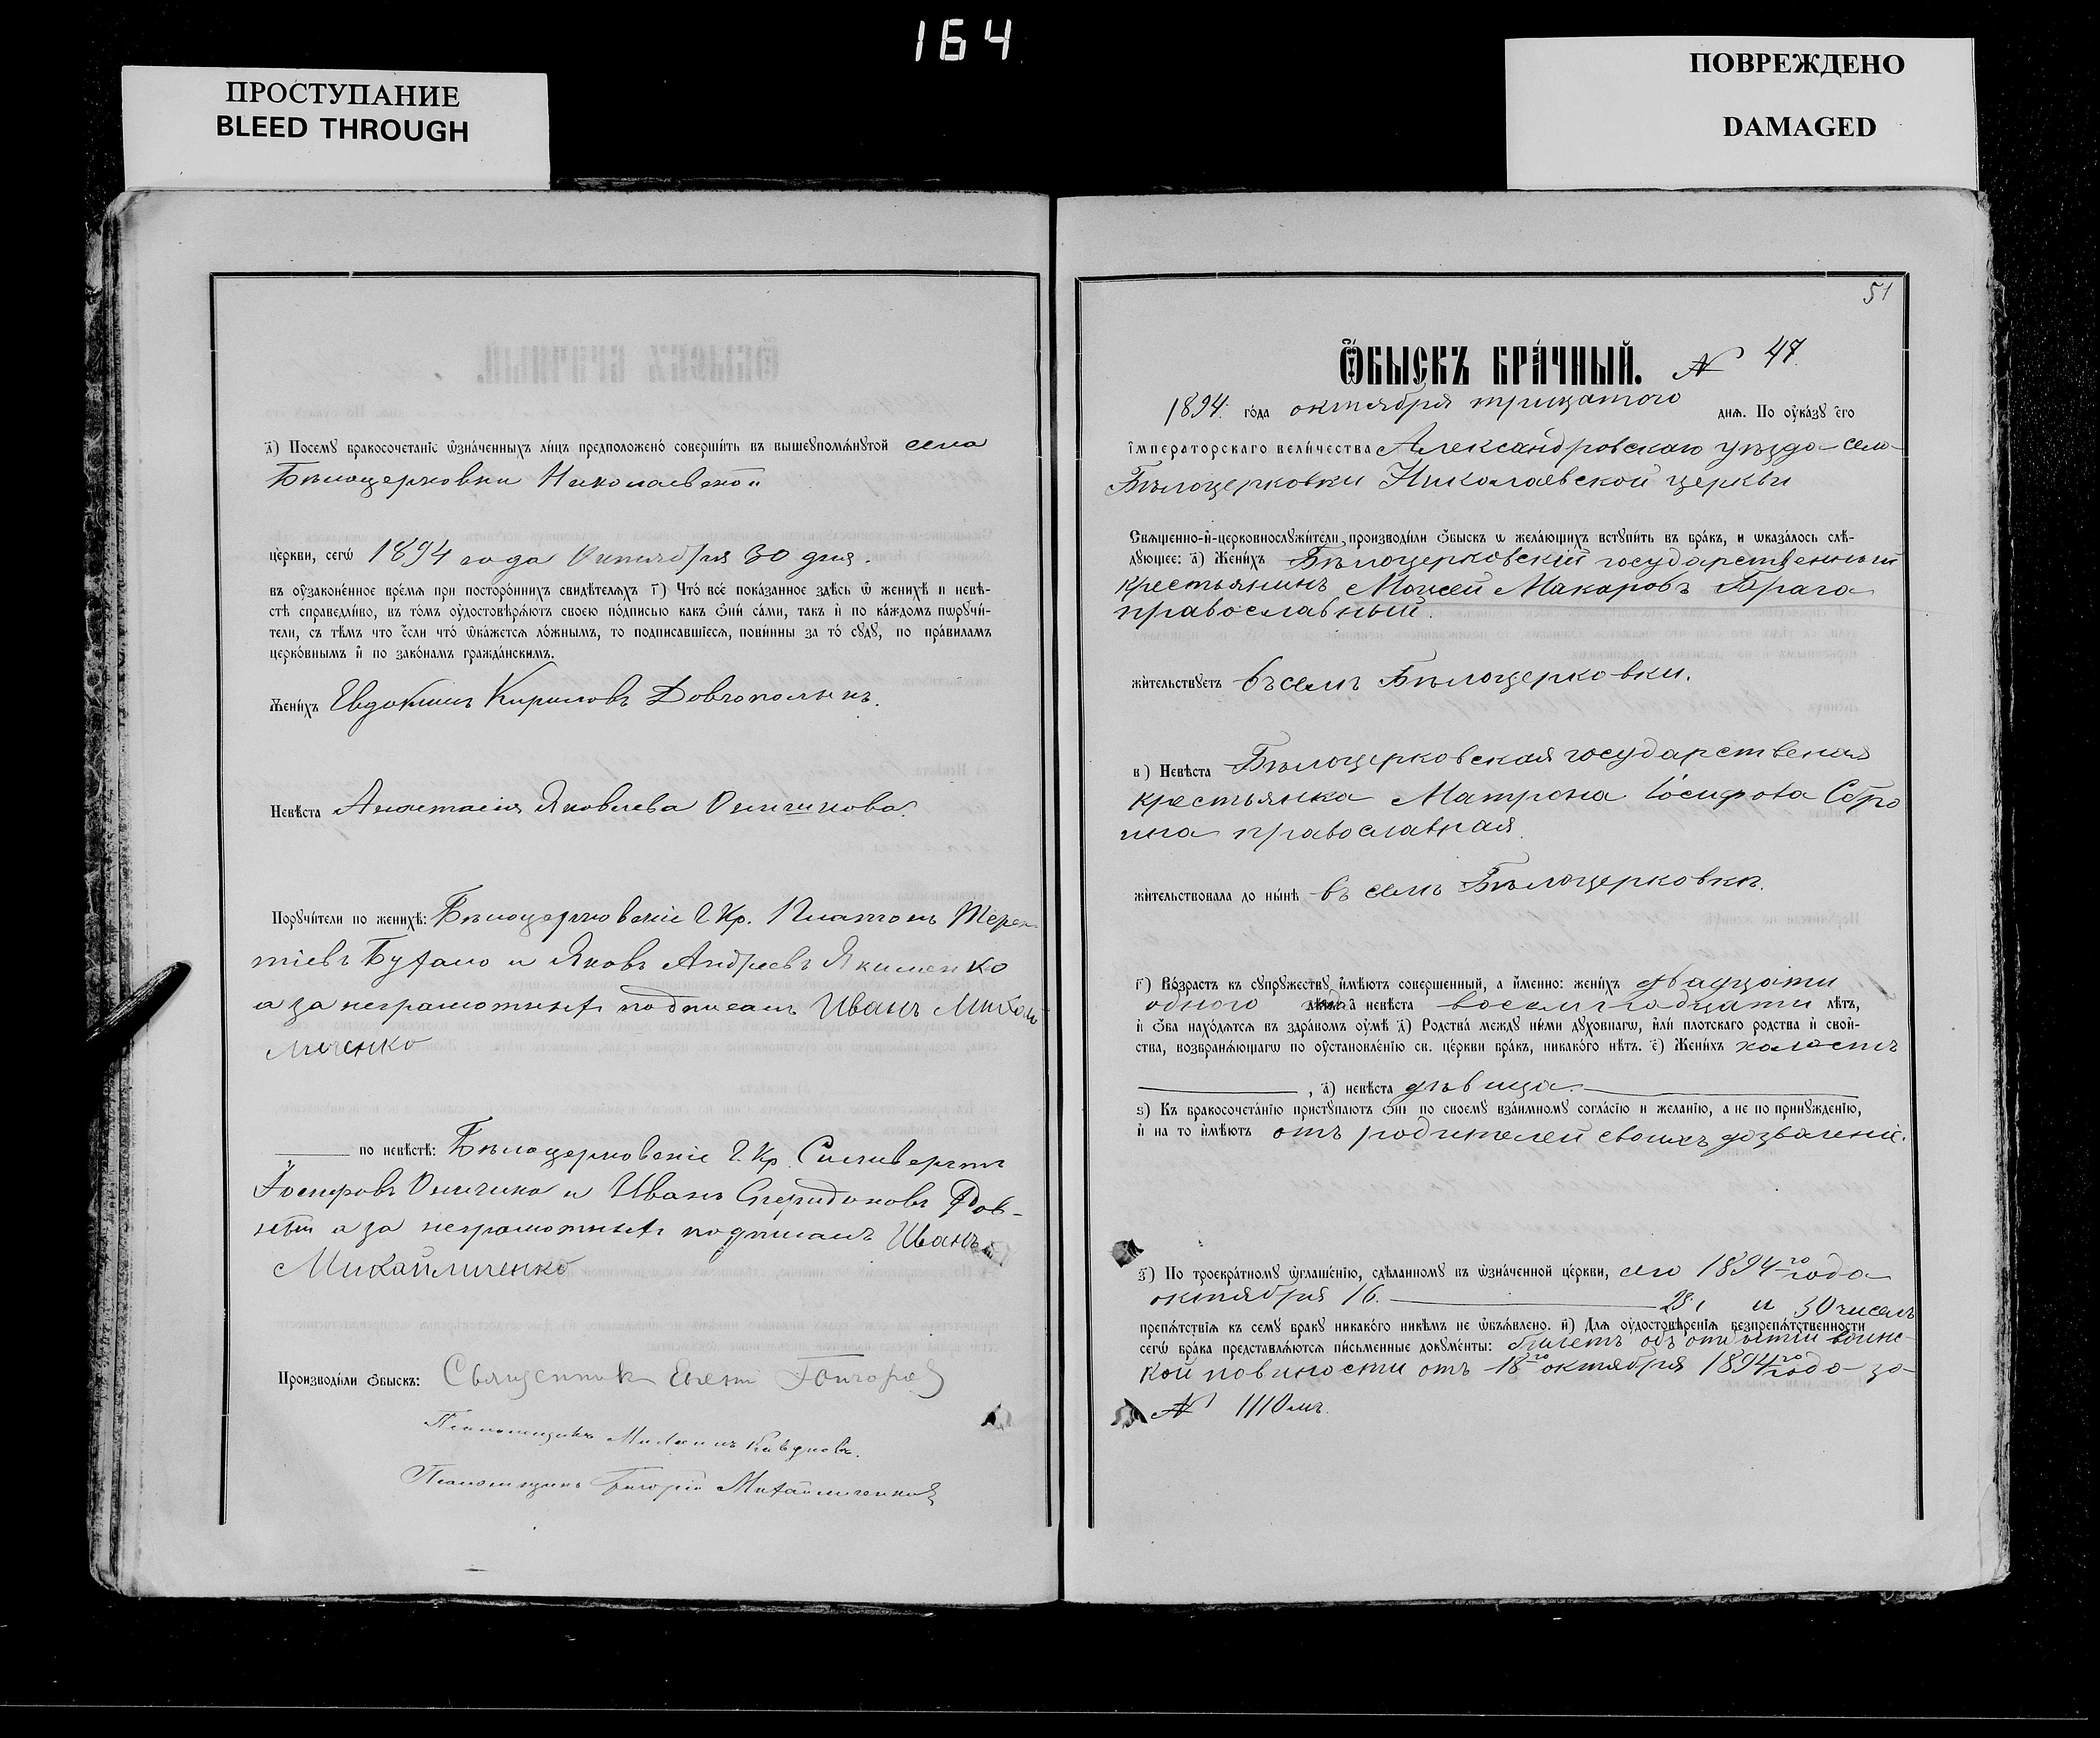 164
ПРОСТУПАНИЕ
BLEED THROUGH
ПОВРЕЖДЕНО
DAMAGED
д҃) Посемꙋ бракосочетанїе ѡзна́ченныхъ ли́цъ предположено̀ соверши́ть въ вышеꙋпомѧ́нꙋтой села
Бѣлоцерковки Николаевской
це́ркви, сегѡ̀ 1894 года Октября 30 дня.
въ ᲂу҆зако́ненное вре́мѧ при посторо́ннихъ свидѣ́телѧхъ г҃) Что̀ всѐ пока́занное здѣсь ѿ женихѣ̀ и невѣ-
стѣ справедли́во, въ то́мъ ᲂу҆достовѣрѧ́ютъ своею по́дписью какъ ѻ҆нѝ са́ми, такъ и҆ по ка́ждомъ порꙋчи́-
тели, съ тѣ́мъ что е҆́сли что̀ ѡ҆ка́жетсѧ ло́жнымъ, то подписавшїесѧ, пови́нны за то̀ сꙋдꙋ̀, по пра́виламъ
церко́внымъ и҆ по зако́намъ гражда́нскимъ.
Жени́хъ Евдокимъ Кириловъ Довгополыкъ.
Невѣ́ста Анастасія Яковлева Оничикова.
Порꙋчи́тели по женихѣ̀: Бѣлоцерковскіе Г. Кр. Платонъ Терен-
тіевъ Буфало и Яковъ Андреевъ Якименко
а за неграмотныхъ подписалъ Иванъ Михай-
личенко
по невѣ́стѣ: Бѣлоцерковскіе Г. Кр. Силивертъ
Іосифовъ Оничико и Иванъ Спиридоновъ Дов-
а за неграмотныхъ подписалъ Иванъ
Михайличенко
Производи́ли ѻ҆́быскъ: Священникъ Гончаров
Псаломщикъ
Псаломщикъ Григорій Михайличенко
51
Ѻ҆́БЫСКЪ БРА́ЧНЫЙ. № 47.
1894. го́да октября трицатого днѧ. По ᲂу҆ка́зꙋ е҆гѡ̀
і҆мператорскаго вели́чества Александровскаго уѣзда села
Бѣлоцерковки Николаевской церкви
Свѧще́нно-и҆-церковнослꙋжи́тели производи́ли ѻ҆́быскъ ѡ жела́ющихъ вступи́ть въ бра́къ, и ѡказа́лось слѣ́-
дꙋющее: а҃) Жени́хъ Бѣлоцерковскій государственный
крестьянинъ Моисей Макаровъ Брага
православный.
жи́тельствꙋетъ въ селѣ Бѣлоцерковки.
в҃) Невѣ́ста Бѣлоцерковская государственая
крестьянка Матрона Іосифова
православная.
жи́тельствовала до ны́нѣ въ селѣ Бѣлоцерковкѣ.
г҃) Во́зрастъ къ сꙋпрꙋ́жествꙋ и҆мѣ́ютъ соверше́нный, а и҆́менно: жени́хъ двадцати
одного а҆ невѣ́ста восемнадцати лѣ́тъ,
и҆ ѻ҆́ба нахо́дѧтсѧ въ здра́вомъ ᲂу҆мѣ̀ д҃) Родства̀ междꙋ ни́ми дꙋхо́внагѡ, и҆лѝ пло́тскаго родства̀ и҆ свой-
ства̀, возбранѧ́ющагѡ по ᲂу҆становле́нію св. це́ркви бра́къ, никако́го нѣ́тъ. е҃) Жени́хъ холостъ
, а҃) невѣ́ста дѣвица.
ѕ҃) Къ бракосочета́нію пристꙋпа́ютъ ѻ҆нѝ по своемꙋ̀ взаи́мномꙋ согла́сїю и жела́нїю, а не по принꙋжде́нїю,
и҆ на то и҆мѣ́ютъ отъ родителей своихъ дозволеніе.
з҃) По троекра́тномꙋ ѡ҆глаше́нїю, сдѣ́ланномꙋ въ ѡ҆зна́ченной це́ркви, сего 1894го года
октября 16. 23, и 30 числъ
препѧ́тствїѧ къ семꙋ̀ бра́кꙋ никако́го никѣ́мъ не ѡ҆бъѧ́влено. и҃) Длѧ ᲂу҆достовѣре́нїѧ безпрепѧ́тственности
сегѡ̀ бра́ка представлѧ́ютсѧ пи́сьменные докꙋме́нты: билетъ объ отбытіи воинс-
кой повиности отъ 18го октября 1894го года за
№ 1110мъ.